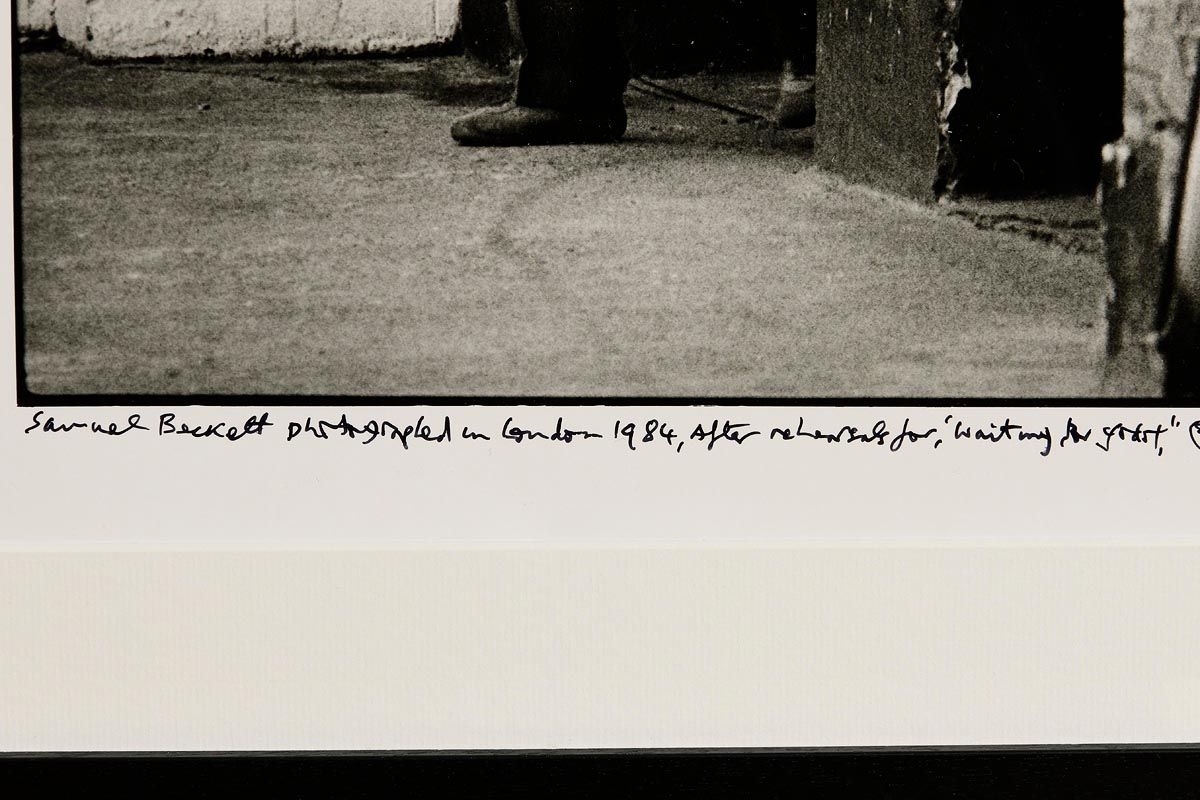 Samuel Beckett photographed in London 1984, After rehearsals for, "Waiting for godot,"